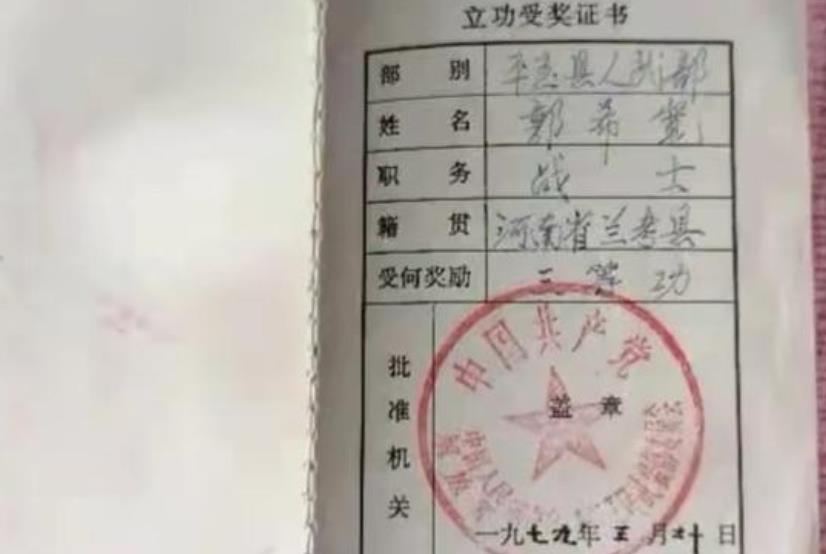 立功受奖证书
部 别 平 县人武部
姓 名 郭希宽
职 务 战 士
籍 贯 河南省兰考县
受何奖励 三等功
批准机关
中国共产党
盖 章
一九七九年三月 十日